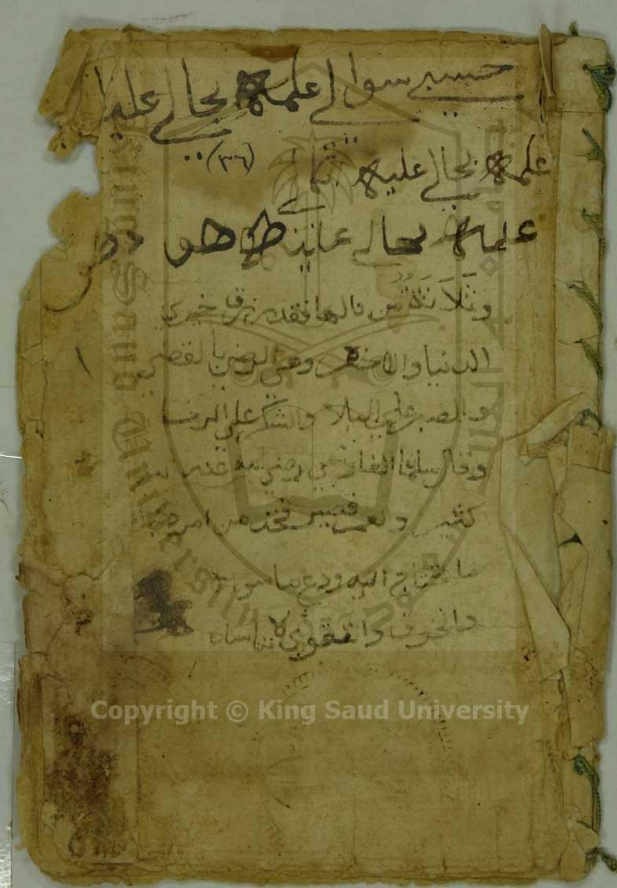 حسبي سوالي علمه بحالي عليه
علمه بحالي عليه ثما لي (٣٦)
علمه بحالي عليه
وثلاثة من قالها فقد رزق خيري
الدنيا والاخره وهي الرضى بالقضى
والصبر على البلا والشكر على الرخا
وقال سلمان الفارسي رضي الله عنه
كثير والعمر قصير فخذ من امر
ما تحتاج اليه ودع ما سواه
والخوف والتقوى لا
King Saud University
Copyright © King Saud University